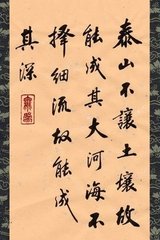 泰山不讓土壤故
能成其大河海不
擇細流故能成
其深